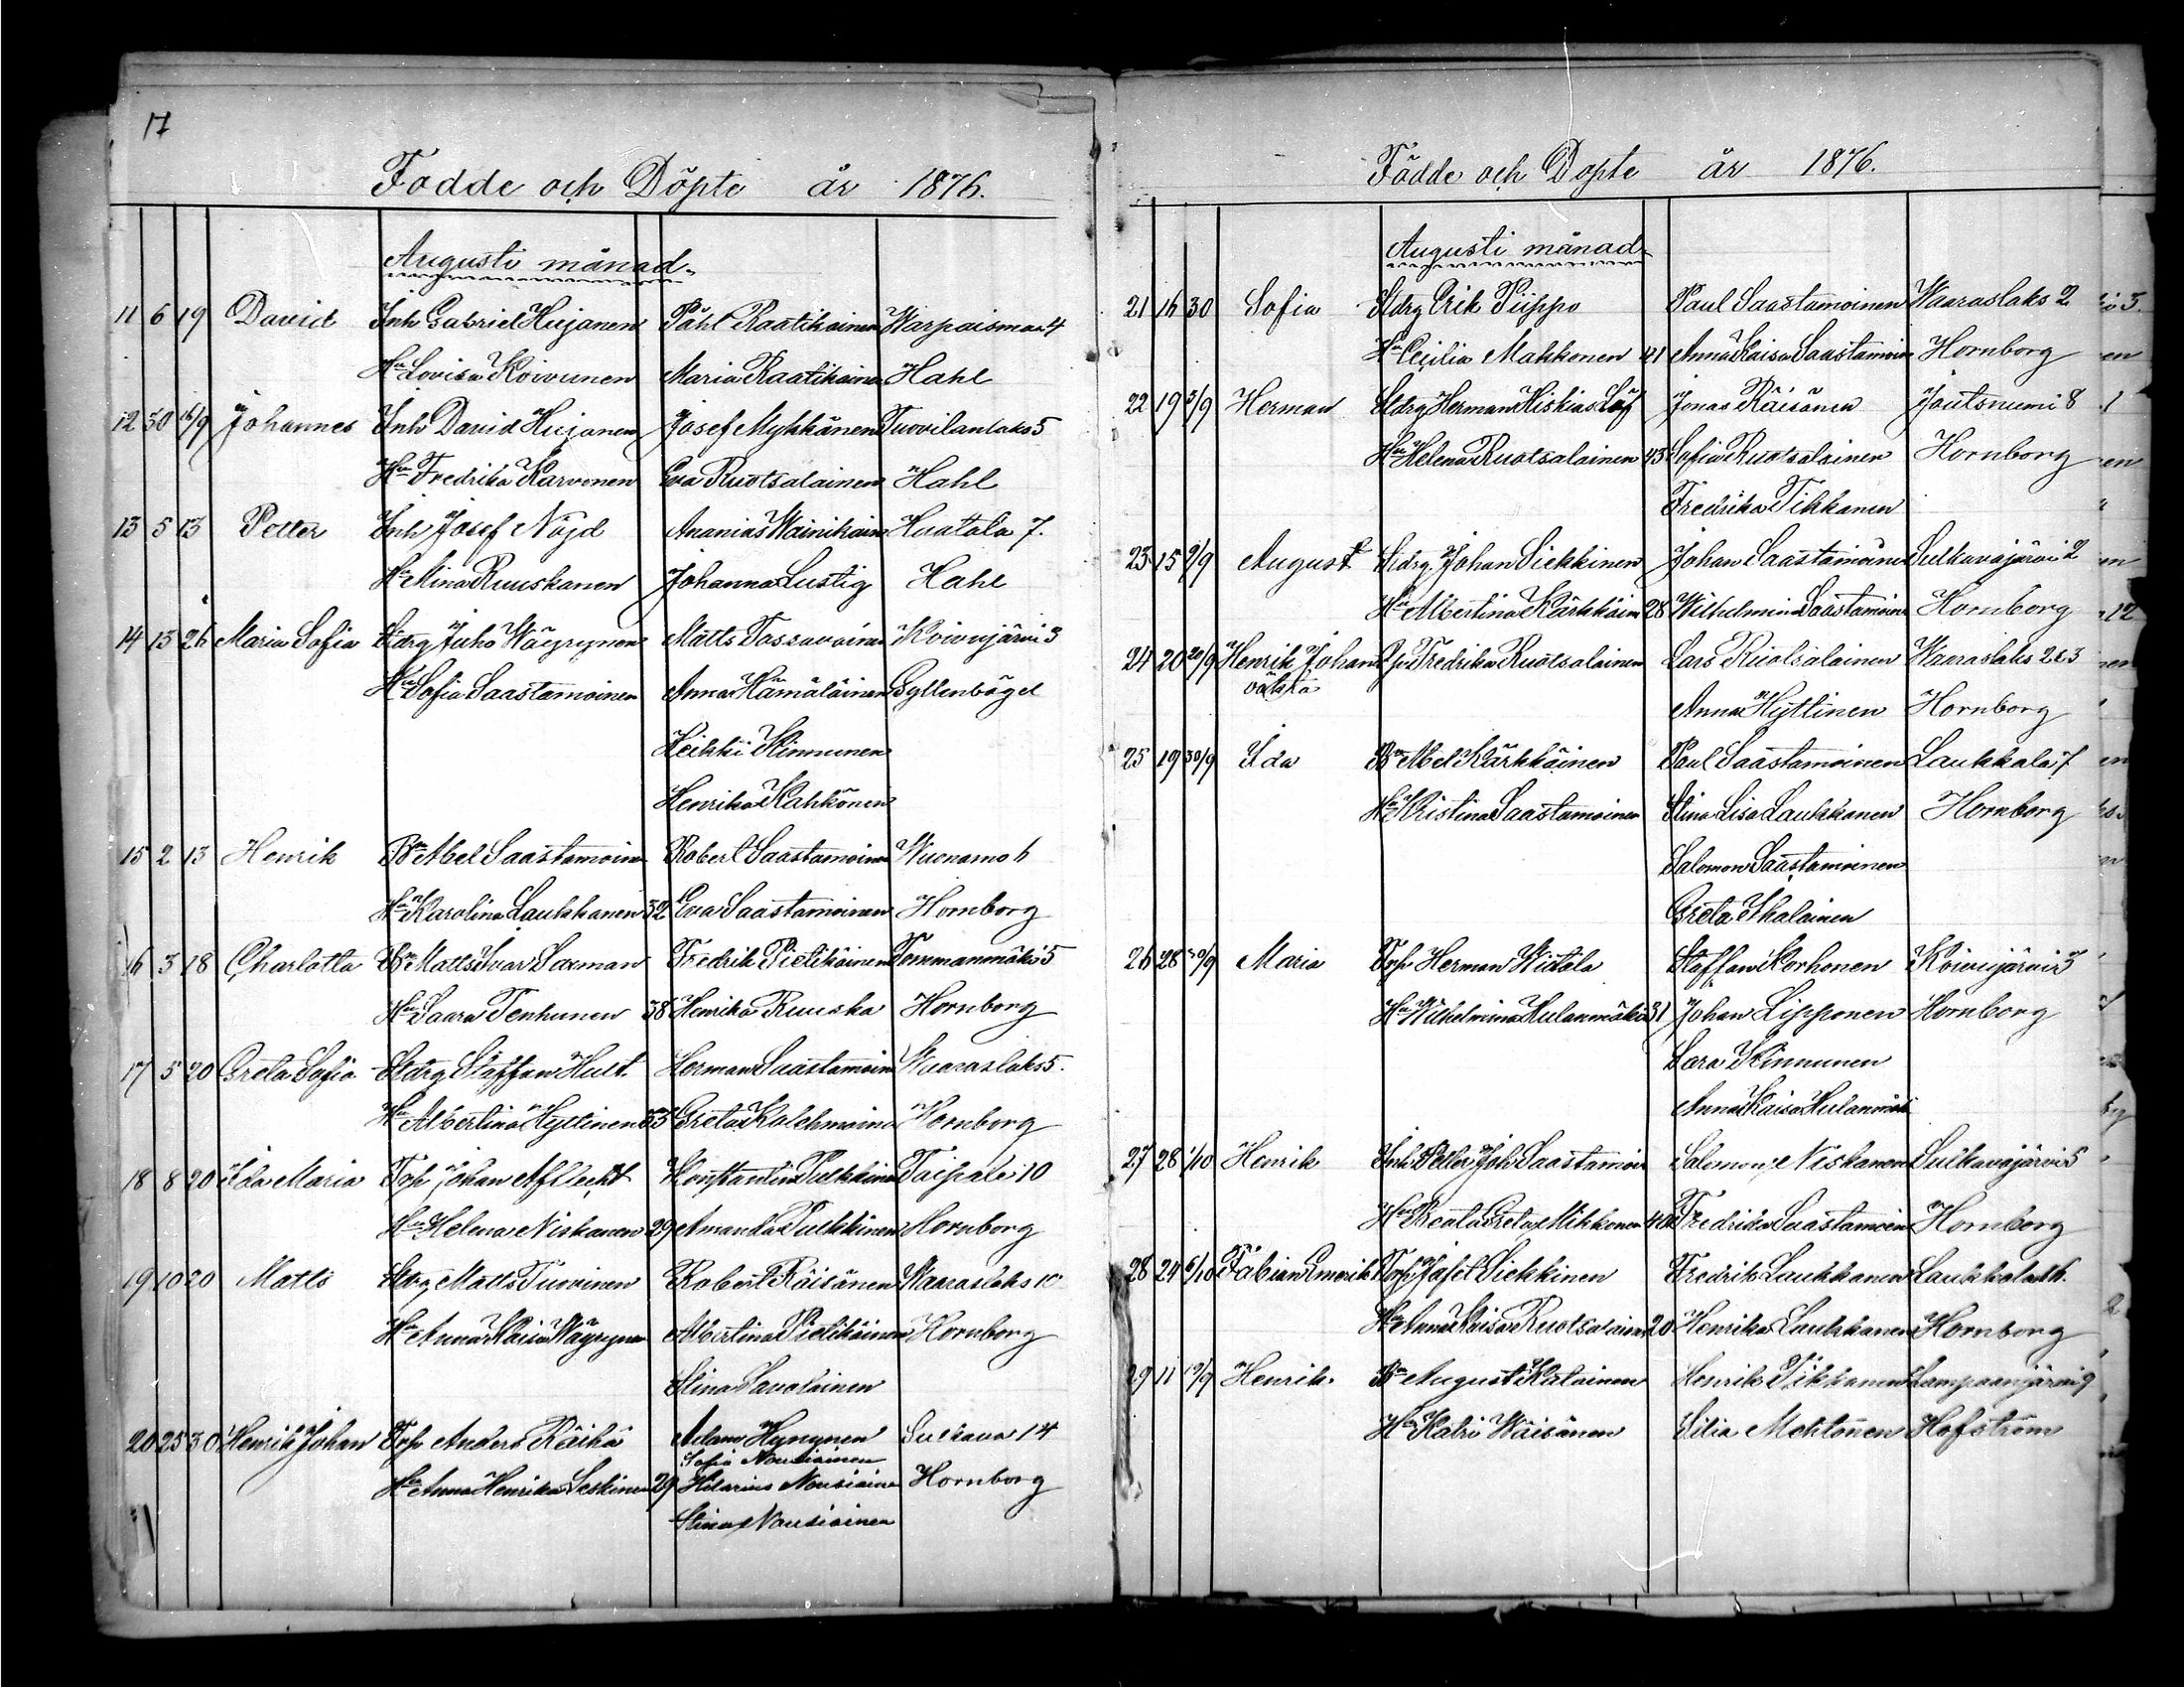 17
Födde och Döpte år 1876.
Augusti månad
11 6 19 David Inh Gabriel Hujanen Påhl Raatikainen Warpaismaa 4
Hu Lovisa Koivunen Maria Raatikaine Hahl
12 30 16/9 Johannes Inh David Hujanen Josef Mykkänen Tuovilanlaks 5
Hu Fredrika Karvonen Eva Ruotsalainen Hahl
13 5 13 Petter Inh Josef Nöjd Ananias Wainikain Haatala 7.
Hu Mina Ruuskanen Johanna Lustig Hahl
14 13 26 Maria Sofia Stdrg Juho Wäyrynen Matts Tassavainen Koivujärvi 3
Hu Sofia Saastamoinen Anna Hämäläinen Gyllenbögel
Heikki Kinnunen
Henrika Kahkönen
15 2 13 Henrik Bn Abel Saastamoine Robert Saastamoine Wuonamo 6
Hu Karolina Laukkanen 32 Eva Saastamoinen Hornborg
16 3 18 Charlotta Bn Matts Ivar Saxman Fredrik Pietikäinen Tommanmäki 5
Hu Saara Tenhunen 38 Henrika Ruuska Hornborg
17 5 20 Greta Sofia Stdrg Staffan Hult Herman Saastamoin Waaraslaks 5.
Hu Albertina Hyttinen 33 Greta Kolehmaine Hornborg
18 8 20 Ida Maria Torp Johan Afflecht Konstantin Pulkkinen Taipale 10
Hu Helena Niskanen 29 Amanda Pulkkinen Hornborg
19 10 20 Matts Stdrg Matts Tuovinen Robert Räisänen Waaraslaks 10
Hu Anna Kaisa Wäyrynen Albertina Pietikäinen Hornborg
Stina Savolainen
20 25 30 Henrik Johan Torp Anders Räihä Adam Hynynen Sulkava 14
Sofia Nousiainen
Hu Anna Henrika Leskinen 29 Hilarius Nousiaine Hornborg
Stina Nousiainen
Födde och Döpte år 1876.
Augusti månad
21 16 30 Sofia Stdrg Erik Piippo Paul Saastamoinen Waaraslaks 2
Hu Cecilia Makkonen 41 Anna Kaisa Saastamoin Hornborg
22 19 3/9 Herman Stdrg Herman Hiskias Löf Jonas Räisänen Joutsnumi 8
Hu Helena Ruotsalainen 43 Sofia Ruotsalainen Hornborg
Fredrika Tikkanen
23 15 9/9 August Stdrg. Johan Siekkinen Johan Saastamoine Sulkavajärvi 2
Hu Albertina Kärkkäin 28 Wilhelmina Saastamoin Hornborg
24 20 20/9 Henrik Johan Pig Fredrika Ruotsalainen Lars Ruotsalainen Waaraslaks 2 & 3
oäkta
Anna Hyttinen Hornborg
25 19 30/9 Ida Bn Abel Kärkkäinen Paul Saastamoinen Laukkala 7
Hu Kristina Saastamoinen Stina Lisa Laukkanen Hornborg
Salomon Saastamoinen
Greta Ikalainen
26 28 30/9 Maria Torp Herman Wiitala Staffan Korhonen Koivujärvi 3
Hu Wilhelmina Hulanmäki 31 Johan Lipponen Hornborg
Sara Kinnunen
Anna Kaisa Hulanmäki
27 28 1/10 Henrik Inh Petter Joh Saastamoin Salomon Niskanen Sulkavajärvi 5
Hu Beata Greta Mikkonen 40 Fredrika Saastamoin Hornborg
28 24 6/10 Fabian Emerik Torp Jafet Siekkinen Fredrik Laukkanen Laukkala 16.
Hu Anna Kaisa Ruotsalaine 20 Henrika Laukkanen Hornborg
29 11 19/9 Henrik. Bn August Kalainen Henrik Tikkanen Lampaanjärvi 9
Hu Katri Wäisänen Silia Mehtonen Hofström